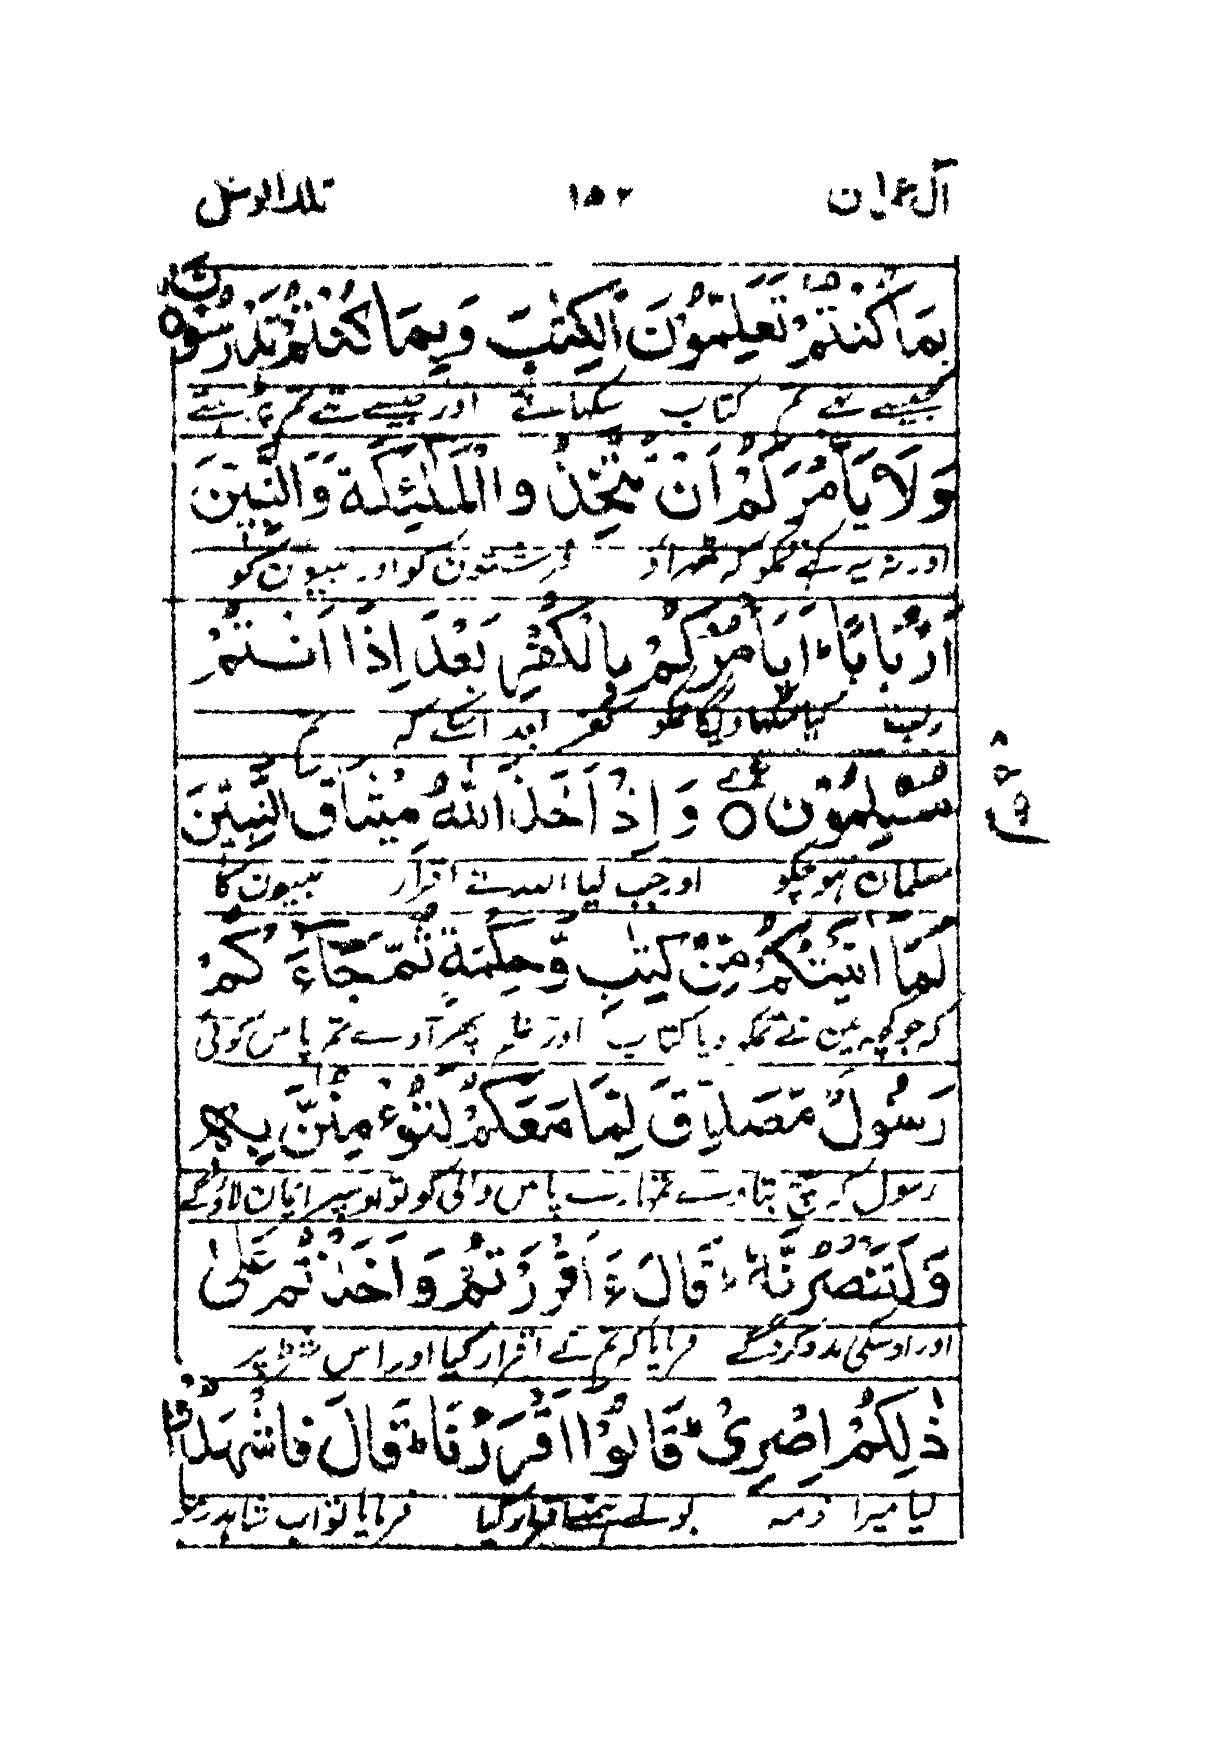 آل عمران ۱۵۲ تلك الرسل
بِمَا كُنْتُمْ تُعَلِّمُوْنَ الْكِتٰبَ وَبِمَا كُنْتُمْ تَدْرُسُوْنَ
جیسے تھے تم کتاب سکھاتے اور جیسے تھے تم
وَلَا يَأْمُرَكُمْ اَنْ تَتَّخِذُوا الْمَلٰٓئِكَةَ وَالنَّبِيّٖنَ
اور نہ یہ کہے تمکو کہ ٹھہراؤ فرشتون کو اور نبیون کو
اَرْبَابًا ؕ اَيَأْمُرُكُمْ بِالْكُفْرِ بَعْدَ اِذْ اَنْتُمْ
رب کیا تمکو کفر بعد اسکے کہ تم
مُّسْلِمُوْنَ ۝ وَاِذْ اَخَذَ اللّٰهُ مِيْثَاقَ النَّبِيّٖنَ
مسلمان ہو چکو اور جب لیا اللہ نے اقرار نبیون کا
لَمَآ اٰتَيْتُكُمْ مِّنْ كِتٰبٍ وَّحِكْمَةٍ ثُمَّ جَآءَكُمْ
کہ جو کچھ مین نے تمکو دیا کتاب اور علم پھر آوے تم پاس کوئی
رَسُوْلٌ مُّصَدِّقٌ لِّمَا مَعَكُمْ لَتُؤْمِنُنَّ بِهٖ
رسول کہ سچ بتاوے تمہارے پاس والی کو تو اوسپر ایمان لاؤگے
وَلَتَنْصُرُنَّهٗ ؕ قَالَ ءَاَقْرَرْتُمْ وَاَخَذْتُمْ عَلٰى
اور اوسکی مدد کروگے فرمایا کہ تم نے اقرار کیا اور اس شرط پر
ذٰلِكُمْ اِصْرِيْ ؕ قَالُوْٓا اَقْرَرْنَا ؕ قَالَ فَاشْهَدُوْا
لیا میرا ذمہ بولے ہمنے اقرار کیا فرمایا تو اب شاہد رہو